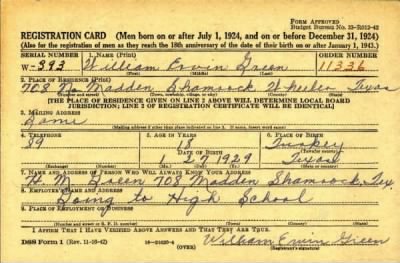 FORM APPROVED
Budget Bureau No. 33-R012-42
REGISTRATION CARD (Men born on or after July 1, 1924, and on or before December 31, 1924)
(Also for the registration of men as they reach the 18th anniversary of the date of their birth on or after January 1, 1943.)
SERIAL NUMBER 1. NAME (Print) ORDER NUMBER
W-393 William Erwin Green 11336
(First) (Middle) (Last)
2. PLACE OF RESIDENCE (Print)
708 No Madden Shamrock Wheeler Texas
(Number and street) (Town, township, village, or city) (County) (State)
[THE PLACE OF RESIDENCE GIVEN ON LINE 2 ABOVE WILL DETERMINE LOCAL BOARD
JURISDICTION; LINE 2 OF REGISTRATION CERTIFICATE WILL BE IDENTICAL]
3. MAILING ADDRESS
Same
[Mailing address if other than place indicated on line 2. If same, insert word same]
4. TELEPHONE 5. AGE IN YEARS 6. PLACE OF BIRTH
89 18 Turkey
DATE OF BIRTH
1 27 1929 Texas
(Exchange) (Number) (Mo.) (Day) (Yr.) (State or country)
7. NAME AND ADDRESS OF PERSON WHO WILL ALWAYS KNOW YOUR ADDRESS
H. M. Green 708 Madden Shamrock, Tex.
8. EMPLOYER'S NAME AND ADDRESS
Going to High School
9. PLACE OF EMPLOYMENT OR BUSINESS
(Number and street or R. F. D. number) (Town) (County) (State)
I AFFIRM THAT I HAVE VERIFIED ABOVE ANSWERS AND THAT THEY ARE TRUE.
DSS Form 1 (Rev. 11-16-42) (OVER) William Erwin Green